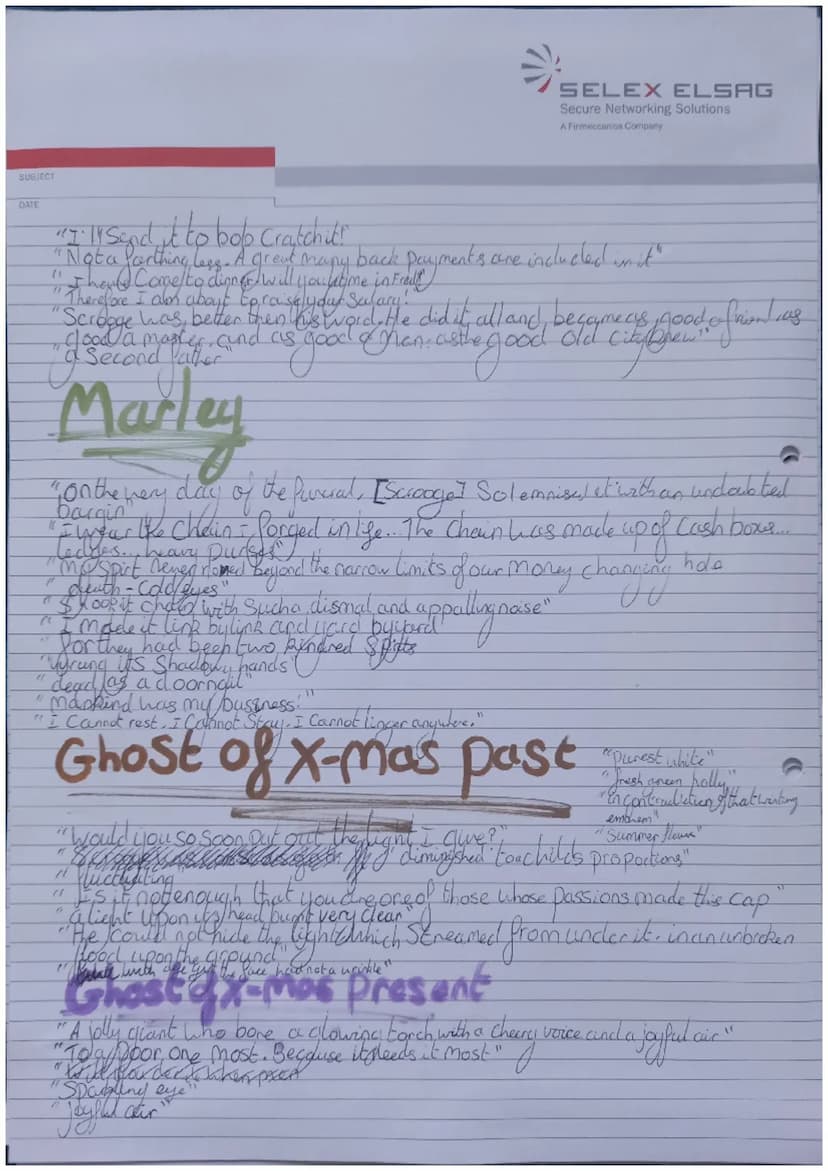 SELEX ELSAG
Secure Networking Solutions
A Finmeccanica Company
SUBJECT
DATE
"I'll Send it to bob Cratchit!
"Not a farthing less. A great many back payments are included in it"
"I have Come to dinner, Will you let me in Fred?"
"Therefore I am about to raise your Salary!"
"Scrooge was better then his word. He did it all and became as good a friend as
good a master, and as good a Man. as the good Old city knew"
"a Second father"
Marley
"on the very day of the funeral, [Scrooge] Solemnised it with an undoubted
bargin"
"I wear the Chain I forged in life... The Chain was made up of Cash boxes...
ledges... heavy purses"
"My spirt never roamed beyond the narrow limits of our money changing hole
"death-Cold eyes"
"Shook it chain with Such a dismal and appalling noise"
"I made it link by link and yard by yard
"for they had been two kindred Spirits
"wrung its Shadowy hands"
"dead as a doornail"
"Mankind was my business!"
"I Cannot rest. I Cannot Stay. I Cannot linger anywhere."
Ghost of X-mas past
"Purest white"
"fresh green holly"
"in contradiction of that wintry
emblem"
"Summer flowers"
"Would you so soon put out the light I give?"
diminished to a child's proportions"
fluctuating
"Is it not enough that you are one of those whose passions made this cap"
"a light upon its head burnt very clear"
"He could not hide the light which Streamed from under it. in an unbroken
flood upon the ground"
the face had not a wrinkle"
Ghost of x-mas present
"A jolly giant who bore a glowing torch with a cheery voice and a joyful air"
"To a poor one most. Because it needs it most"
"Sparkling eye"
"joyful air"